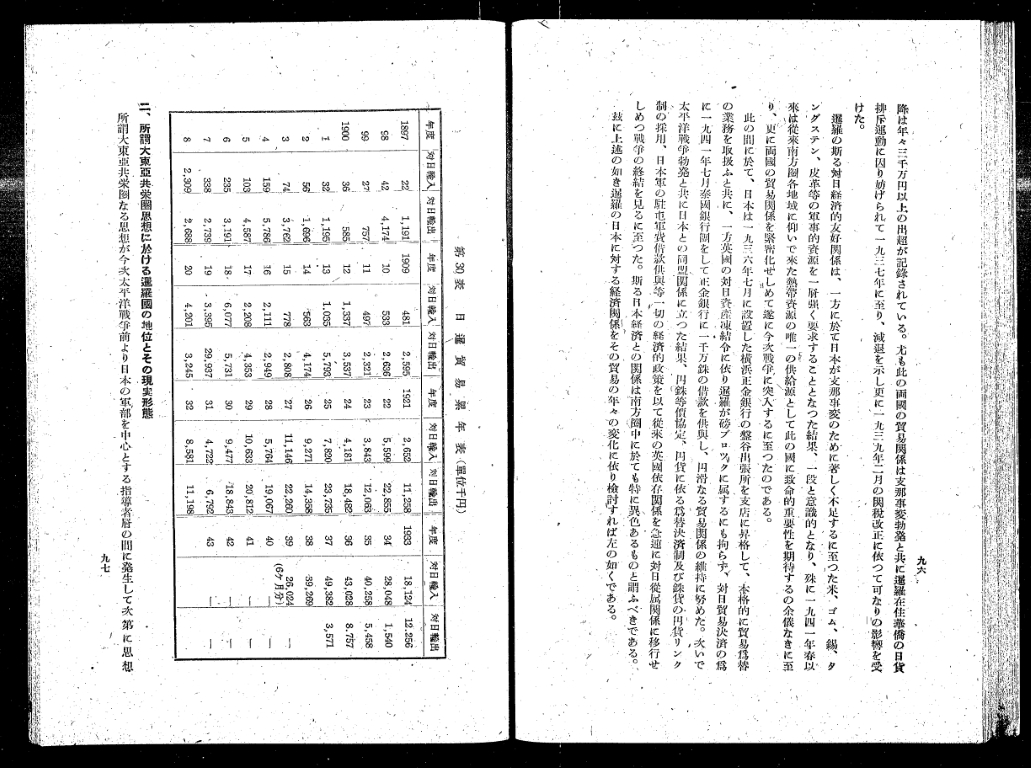 九六
降は年々三千万円以上の出超が記録されている。尤も此の両國の貿易関係は支那事変勃発と共に暹羅在住華僑の日貨
排斥運動に因り妨げられて一九三七年に至り、減退を示し更に一九三九年二月の関税改正に依つて可なりの影響を受
けた。
暹羅の斯る対日経済的友好関係は、一方に於て日本が支那事変のために著しく不足するに至つた米、ゴム、錫、タ
ングステン、皮革等の軍事的資源を一層強く要求することとなつた結果、一段と意識的となり、殊に一九四一年春以
来は従来南方圏各地域に仰いで来た熱帯資源の唯一の供給源として此の國に致命的重要性を期待するの余儀なきに至
り、更に両國の貿易関係を緊密化せしめて遂に今次戦争に突入するに至つたのである。
此の間に於て、日本は一九三六年七月に設置した横浜正金銀行の盤谷出張所を支店に昇格して、本格的に貿易為替
の業務を取扱ふと共に、一方英國の対日資産凍結令に依り暹羅が磅ブロックに属するにも拘らず、対日貿易決済の為
に一九四一年七月泰國銀行団をして正金銀行に一千万銖の借款を供与し、円滑なる貿易関係の維持に努めた。次いで
太平洋戦争勃発と共に日本との同盟関係に立つた結果、円銖等価協定、円貨に依る為替決済制及び銖貨の円貨リンク
制の採用、日本軍の駐屯軍費借款供與等一切の経済的政策を以て従来の英國依存関係を急速に対日従属関係に移行せ
しめつつ戦争の終結を見るに至つた。斯る日本経済との関係は南方圏中に於ても特に異色あるものと謂ふべきである。
玆に上述の如き暹羅の日本に対する経済関係をその貿易の年々の変化に依り検討すれば左の如くである。
第30表 日暹貿易累年表(單位千円)
年度 対日輸入 対日輸出 年度 対日輸入 対日輸出 年度 対日輸入 対日輸出 年度 対日輸入 対日輸出
1897 22 1,191 1909 481 2,595 1921 2,652 11,258 1933 18,124 12,256
98 42 4,174 10 533 2,636 22 5,599 22,855 34 28,048 1,540
99 27 757 11 497 2,321 23 3,843 12,063 35 40,258 5,458
1900 36 585 12 1,337 3,537 24 4,181 18,482 36 43,028 8,757
1 32 1,195 13 1,035 5,793 25 7,820 23,735 37 49,382 3,571
2 56 1,696 14 563 4,174 26 9,271 14,358 38 39,269
3 74 3,762 15 778 2,808 27 11,146 22,260 39 26,024 (6ケ月分) —
4 159 5,786 16 2,111 2,949 28 5,764 19,067 40 — —
5 103 4,587 17 2,208 4,353 29 10,633 20,812 41 — —
6 235 3,191 18 6,077 5,731 30 9,477 18,843 42 — —
7 338 2,739 19 3,395 29,937 31 4,722 6,792 43 — —
8 2,309 2,688 20 4,201 3,245 32 8,581 11,198
二、所謂大東亞共栄圏思想に於ける暹羅國の地位とその現実形態
所謂大東亞共栄圏なる思想が今次太平洋戦争前より日本の軍部を中心とする指導者層の間に発生して次第に思想
九七